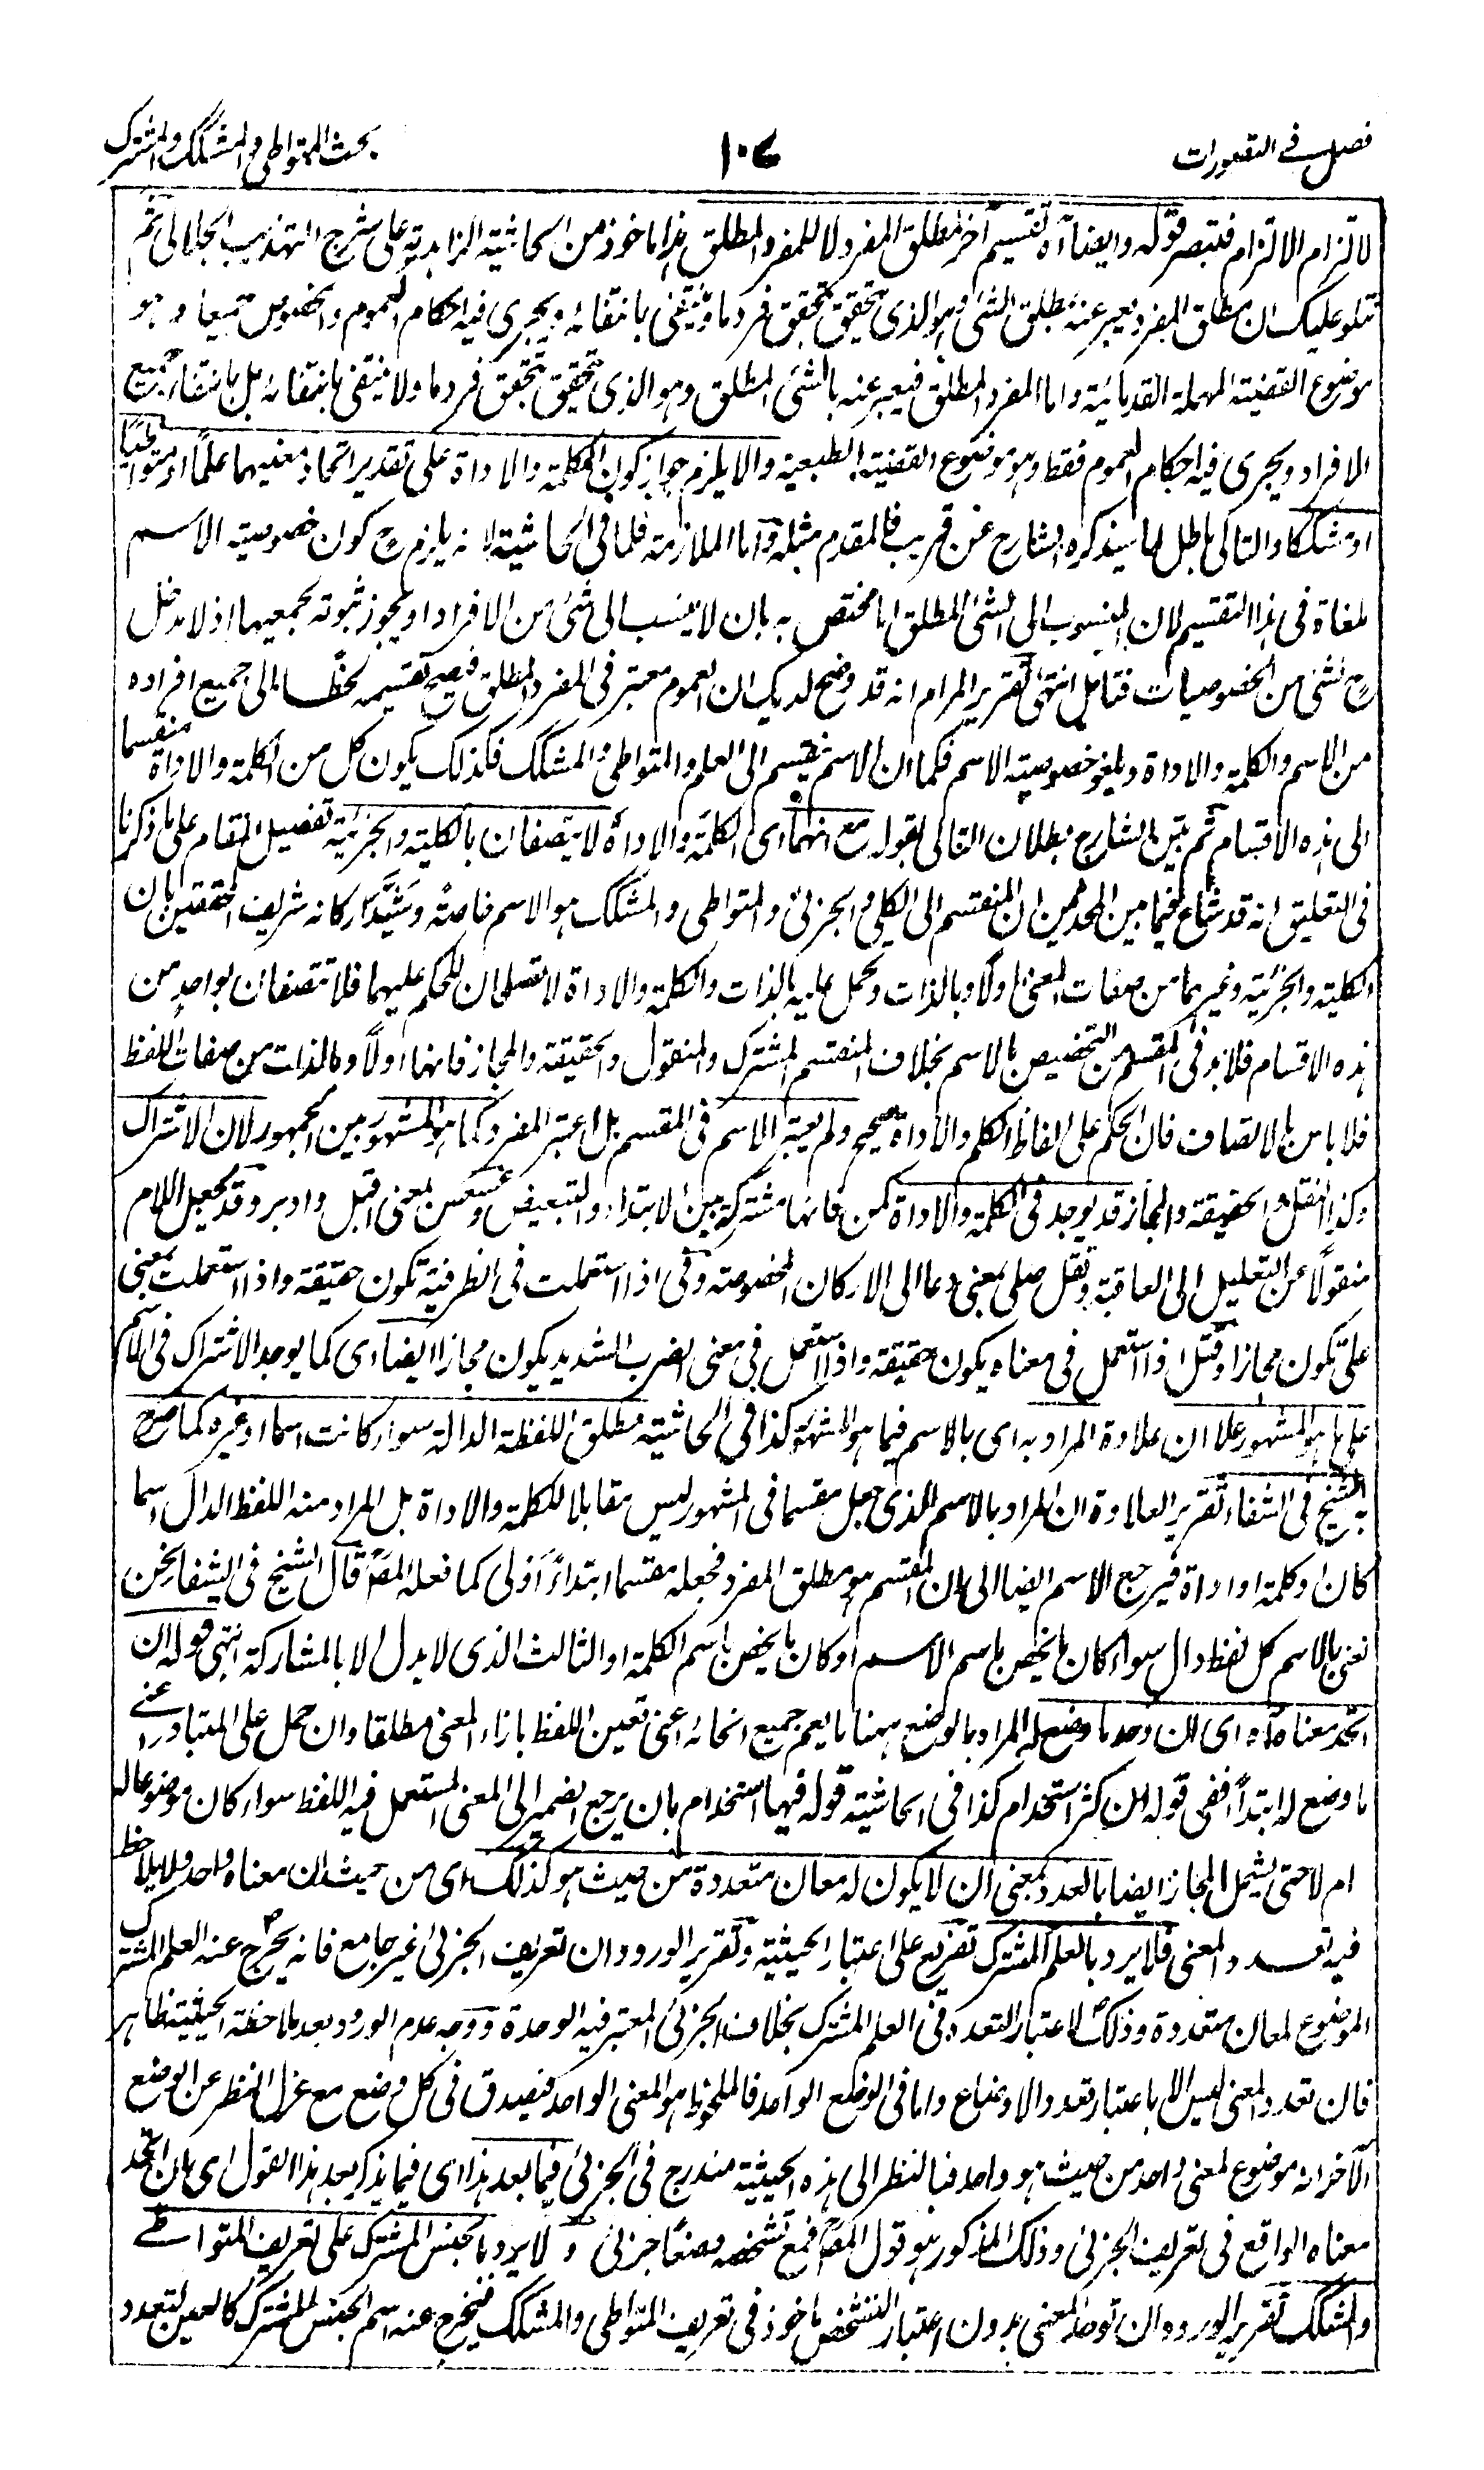 فصل فی التصورات
۱۰۷
بحث المتواطی والمشکک والمشترک
لا لتزام الالتزام فتبصر قوله وایضا آه تقسیم آخر لمطلق المفرد لا للمفرد المطلق هذا ماخوذ من الحاشیة الزاهدیة علی شرح التهذیب الجلالی ثم
نتلو علیک ان مطلق المفرد یعبر عنه بمطلق الشئ وهو الذی یتحقق بتحقق فرد ما وینتفی بانتفائه ویجری فیه احکام العموم والخصوص جمیعا وهو
موضوع القضیة المهملة القدمائیة واما المفرد المطلق فیعبر عنه بالشئ المطلق وهو الذی یتحقق بتحقق فرد ما ولا ینتفی بانتفائه بل بانتفاء جمیع
الافراد ویجری فیه احکام العموم فقط وهو موضوع القضیة الطبعیة والا یلزم جواز کون الکلمة والاداة علی تقدیر اتحاد معنیهما علمًا او متواطیًا
او مشککا والتالی باطل لما سیذکره الشارح عن قریب فالمقدم مثله واما الملازمة فلما فی الحاشیة لانه یلزم ح کون خصوصیة الاسم
ملغاة فی هذا التقسیم لان المنسوب الی الشئ المطلق اما مختص به بان لا ینسب الی شئ من الافراد او یجوز ثبوته لجمیعها اذ لا دخل
ح لشئ من الخصوصیات فتامل انتهی تقریر المرام انه قد وضح لدیک ان العموم معتبر فی المفرد المطلق فیصح تقسیمه لحظًا الی جمیع افراده
من الاسم والکلمة والاداة ویلغو خصوصیة الاسم فکما ان الاسم ینقسم الی العلم والمتواطی والمشکک فکذلک یکون کل من الکلمة والاداة منقسما
الی هذه الاقسام ثم بین الشارح بطلان التالی بقوله مع انهما ای الکلمة والاداة لا یتصفان بالکلیة والجزئیة تفصیل المقام علی ما ذکرنا
فی التعلیق انه قد شاع فیما بین المحصلین ان المنقسم الی الکلی والجزئی والمتواطی والمشکک هو الاسم خاصة وشید ارکانه شریف المحققین بان
الکلیة والجزئیة وغیرهما من صفات المعنی اولا وبالذات وتحمل علیه بالذات والکلمة والاداة لا تصلحان للحکم علیهما فلا تتصفان بواحد من
هذه الاقسام فلا بد فی المقسم من التخصیص بالاسم بخلاف المنقسم المشترک والمنقول والحقیقة والمجاز فانها اولاً وبالذات من صفات اللفظ
فلا باس بالاتصاف فان الحکم علی الفاظ الکلم والاداة صحیح ولم یعتبر الاسم فی المقسم بل اعتبر المفرد کما هو المشهور بین الجمهور لان الاشتراک
وکذا النقل والحقیقة والمجاز قد یوجد فی الکلمة والاداة کمن فانها مشترکة بین الابتداء والتبعیض وعسعس لمعنی اقبل وادبر وقد یجعل اللام
منقولاً عن التعلیل الی العاقبة ونقل صلی بمعنی دعا الی الارکان المخصوصة وفی اذا استعملت فی الظرفیة تکون حقیقة واذا استعملت بمعنی
علی تکون مجازا وقتل اذا استعمل فی معناه یکون حقیقة واذا استعمل فی معنی الضرب الشدید یکون مجازا ایضا ای کما یوجد الاشتراک فی الاسم
علی ما هو المشهور علا ان علاوة المراد به ای بالاسم فیما هو المشهور کذا فی الحاشیة مطلق اللفظة الدالة سواء کانت اسما او غیره کما صرح
به الشیخ فی الشفاء تقریر العلاوة ان المراد بالاسم الذی جعل مقسما فی المشهور لیس مقابلا للکلمة والاداة بل المراد منه اللفظ الدال اسما
کان او کلمة او اداة فیرجع الاسم ایضا الی ان المقسم هو مطلق المفرد فجعله مقسما ابتداءً اولی کما فعله المصر قال الشیخ فی الشفا نحن
نعنی بالاسم کل لفظ دال سواء کان ما یخص باسم الاسم او کان ما یخص باسم الکلمة او الثالث الذی لا یدل الا بالمشارکة انتهی قوله ان
اتحد معناه آه ای ان وحد ما وضع له المراد بالوضع ههنا ما یعم جمیع انحائه اعنی تعین اللفظ بازاء المعنی مطلقا وان حمل علی المتبادر اعنی
ما وضع له ابتداءً ففی قوله ان کثر استخدام کذا فی الحاشیة قوله فیها استخدام بان یرجع الضمیر الی المعنی المستعمل فیه اللفظ سواء کان موضوعا له
ام لا حتی یشمل المجاز ایضا بالعدد بمعنی ان لا یکون له معان متعددة من حیث هو کذلک ای من حیث ان معناه واحد ولا یلاحظ
فیه تعدد المعنی فلا یرد بالعلم المشترک تفریع علی اعتبار الحیثیة وتقریر الورود ان تعریف الجزئی غیر جامع فانه یخرج عنه العلم المشترک
الموضوع لمعان متعددة وذلک لاعتبار التعدد فی العلم المشترک بخلاف الجزئی المعتبر فیه الوحدة ووجه عدم الورود بعد ملاحظة الحیثیة ظاهر
فان تعدد المعنی لیس الا باعتبار تعدد الاوضاع واما فی الوضع الواحد فالملحوظ هو المعنی الواحد فیصدق فی کل وضع مع عزل النظر عن الوضع
الآخر انه موضوع لمعنی واحد من حیث هو واحد فبالنظر الی هذه الحیثیة مندرج فی الجزئی فیما بعد هذا ای فیما یذکر بعد هذا القول ای بان اتحد
معناه الواقع فی تعریف الجزئی وذلک المذکور هو قول المصر فمع تشخصه وضعًا جزئی ولا یرد بالجنس المشترک علی تعریف المتواطی
والمشکک تقریر الورود ان توحد المعنی بدون اعتبار التشخص ماخوذ فی تعریف المتواطی والمشکک فیخرج عنه اسم الجنس المشترک کالعین لتعدد